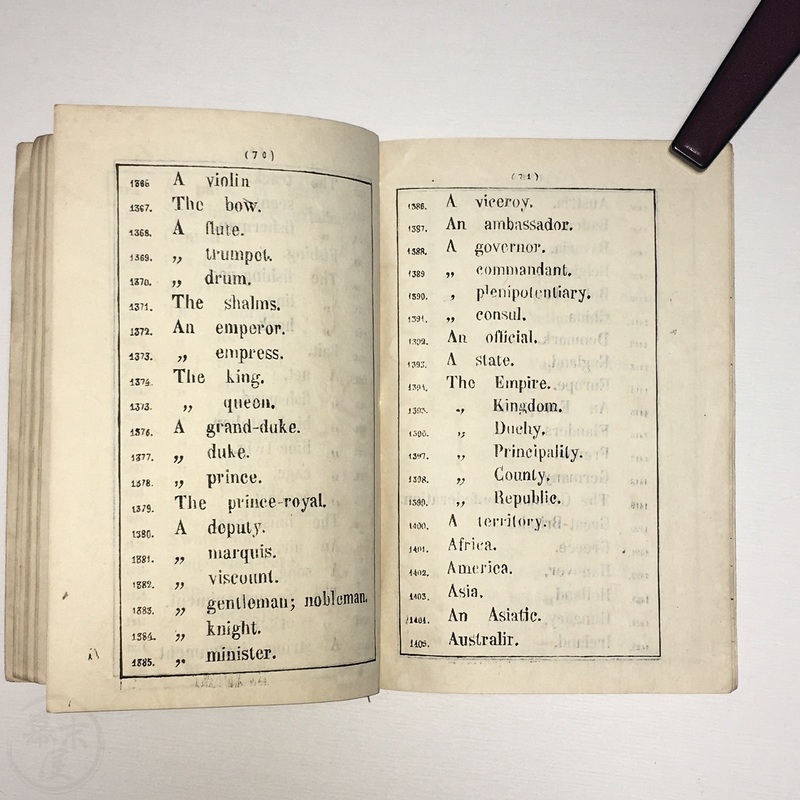 (70)
1366 A violin
1367. The bow.
1368. A flute.
1369. „ trumpet.
1370. „ drum.
1371. The shalms.
1372. An emperor.
1373. „ empress.
1374. The king.
1373. „ queen.
1376. A grand-duke.
1377. „ duke.
1378. „ prince.
1379. The prince-royal.
1380. A deputy.
1381. „ marquis.
1382. „ viscount.
1383. „ gentleman; nobleman.
1384. „ knight.
1385. „ minister.
(71)
1386. A viceroy.
1387. An ambassador.
1388. A governor.
1389 „ commandant.
1390. , plenipotentiary.
1391. „ consul.
1392. An official.
1393. A state.
1394. The Empire.
1395. „ Kingdom.
1396. „ Duchy.
1397. „ Principality.
1398. „ County.
1399. „ Republic.
1400. A territory.
1401. Africa.
1402. America.
1403. Asia.
1404. An Asiatic.
1405. Australir.
幕末屋